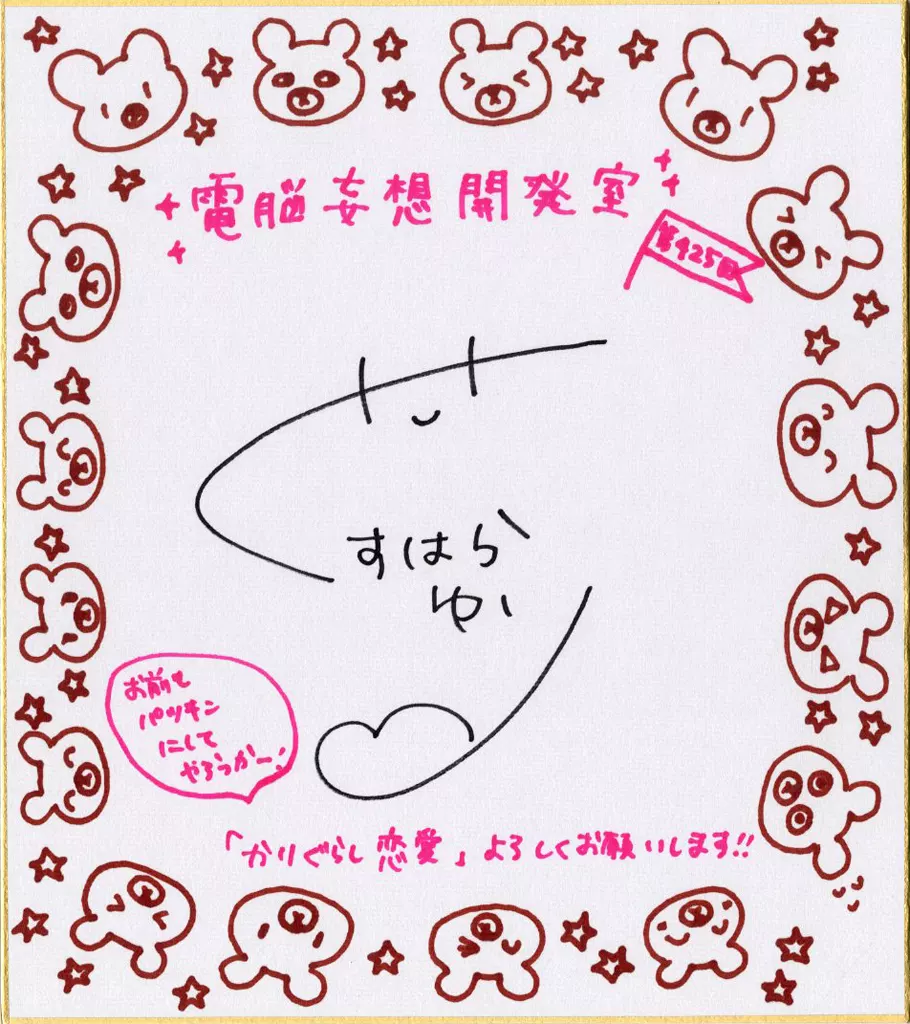 電脳妄想開発室
第425回
すはら
ゆい
お前も
パツキン
にして
やろうかー!
「かりぐらし恋愛」よろしくお願いします!!